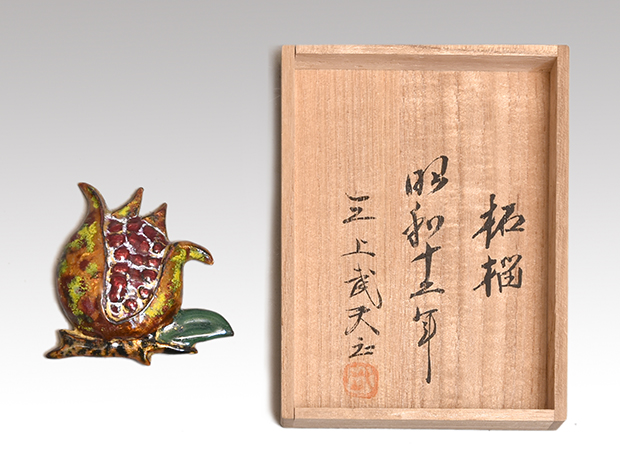 柘榴
昭和十五年
三上武夫